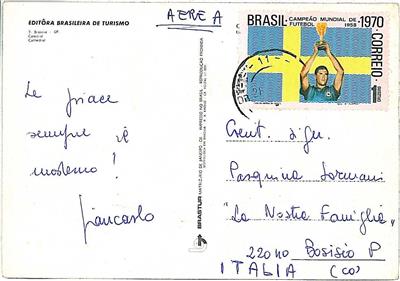 AEREA
EDITÔRA BRASILEIRA DE TURISMO
7. Brasília - DF
Catedral
Cathedral
BRASIL
CAMPEÃO MUNDIAL DE FUTEBOL
1958
1970
CORREIO
Le piace
sempre il
moderno!
Giancarlo
BRASTUR
Gent. Sig.na
Pasquina Lormani
"La Nostra Famiglia"
22040 Bosisio P
ITALIA (CO)